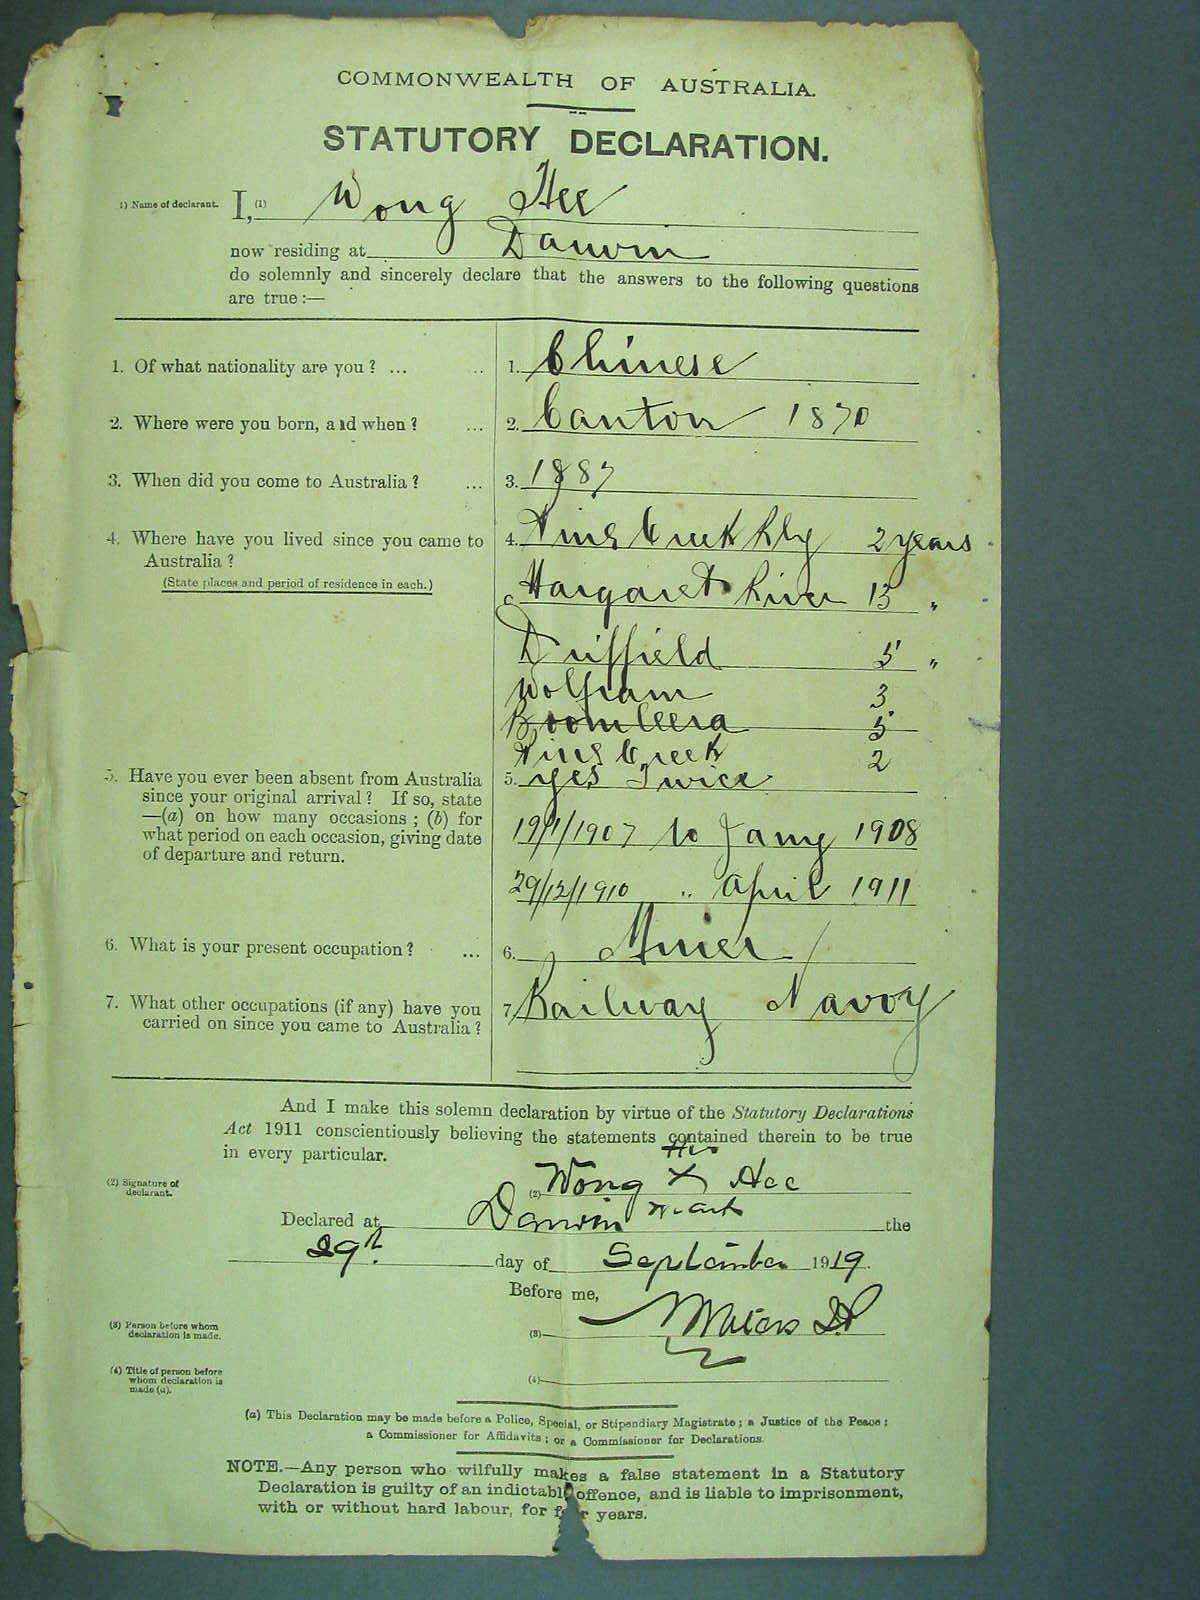 COMMONWEALTH OF AUSTRALIA.
STATUTORY DECLARATION.
1) Name of declarant. I, (1) Wong Hee
now residing at Darwin
do solemnly and sincerely declare that the answers to the following questions
are true:—
1. Of what nationality are you? ... .. 1. Chinese
2. Where were you born, and when? ... 2. Canton 1870
3. When did you come to Australia? ... 3. 1887
4. Where have you lived since you came to 4. Pine Creek Rly 2 years
Australia?
(State places and period of residence in each.) Margaret River 13 "
Driffield 5 "
Wolfram 3
Boomleera 5
Pine Creek 2
5. Have you ever been absent from Australia 5. yes Twice
since your original arrival? If so, state
—(a) on how many occasions; (b) for
what period on each occasion, giving date 19/1/1907 to Jany 1908
of departure and return.
29/12/1910 " April 1911
6. What is your present occupation? ... 6. Miner
7. What other occupations (if any) have you 7. Railway Navvy
carried on since you came to Australia?
And I make this solemn declaration by virtue of the Statutory Declarations
Act 1911 conscientiously believing the statements contained therein to be true
in every particular.
His
(2) Signature of declarant. (2) Wong X Hee
mark
Declared at Darwin the
29th day of September 1919.
Before me,
(3) Person before whom declaration is made. (3) Waters JP
(4) Title of person before whom declaration is made (a). (4)
(a) This Declaration may be made before a Police, Special, or Stipendiary Magistrate; a Justice of the Peace;
a Commissioner for Affidavits; or a Commissioner for Declarations.
NOTE.—Any person who wilfully makes a false statement in a Statutory
Declaration is guilty of an indictable offence, and is liable to imprisonment,
with or without hard labour, for four years.